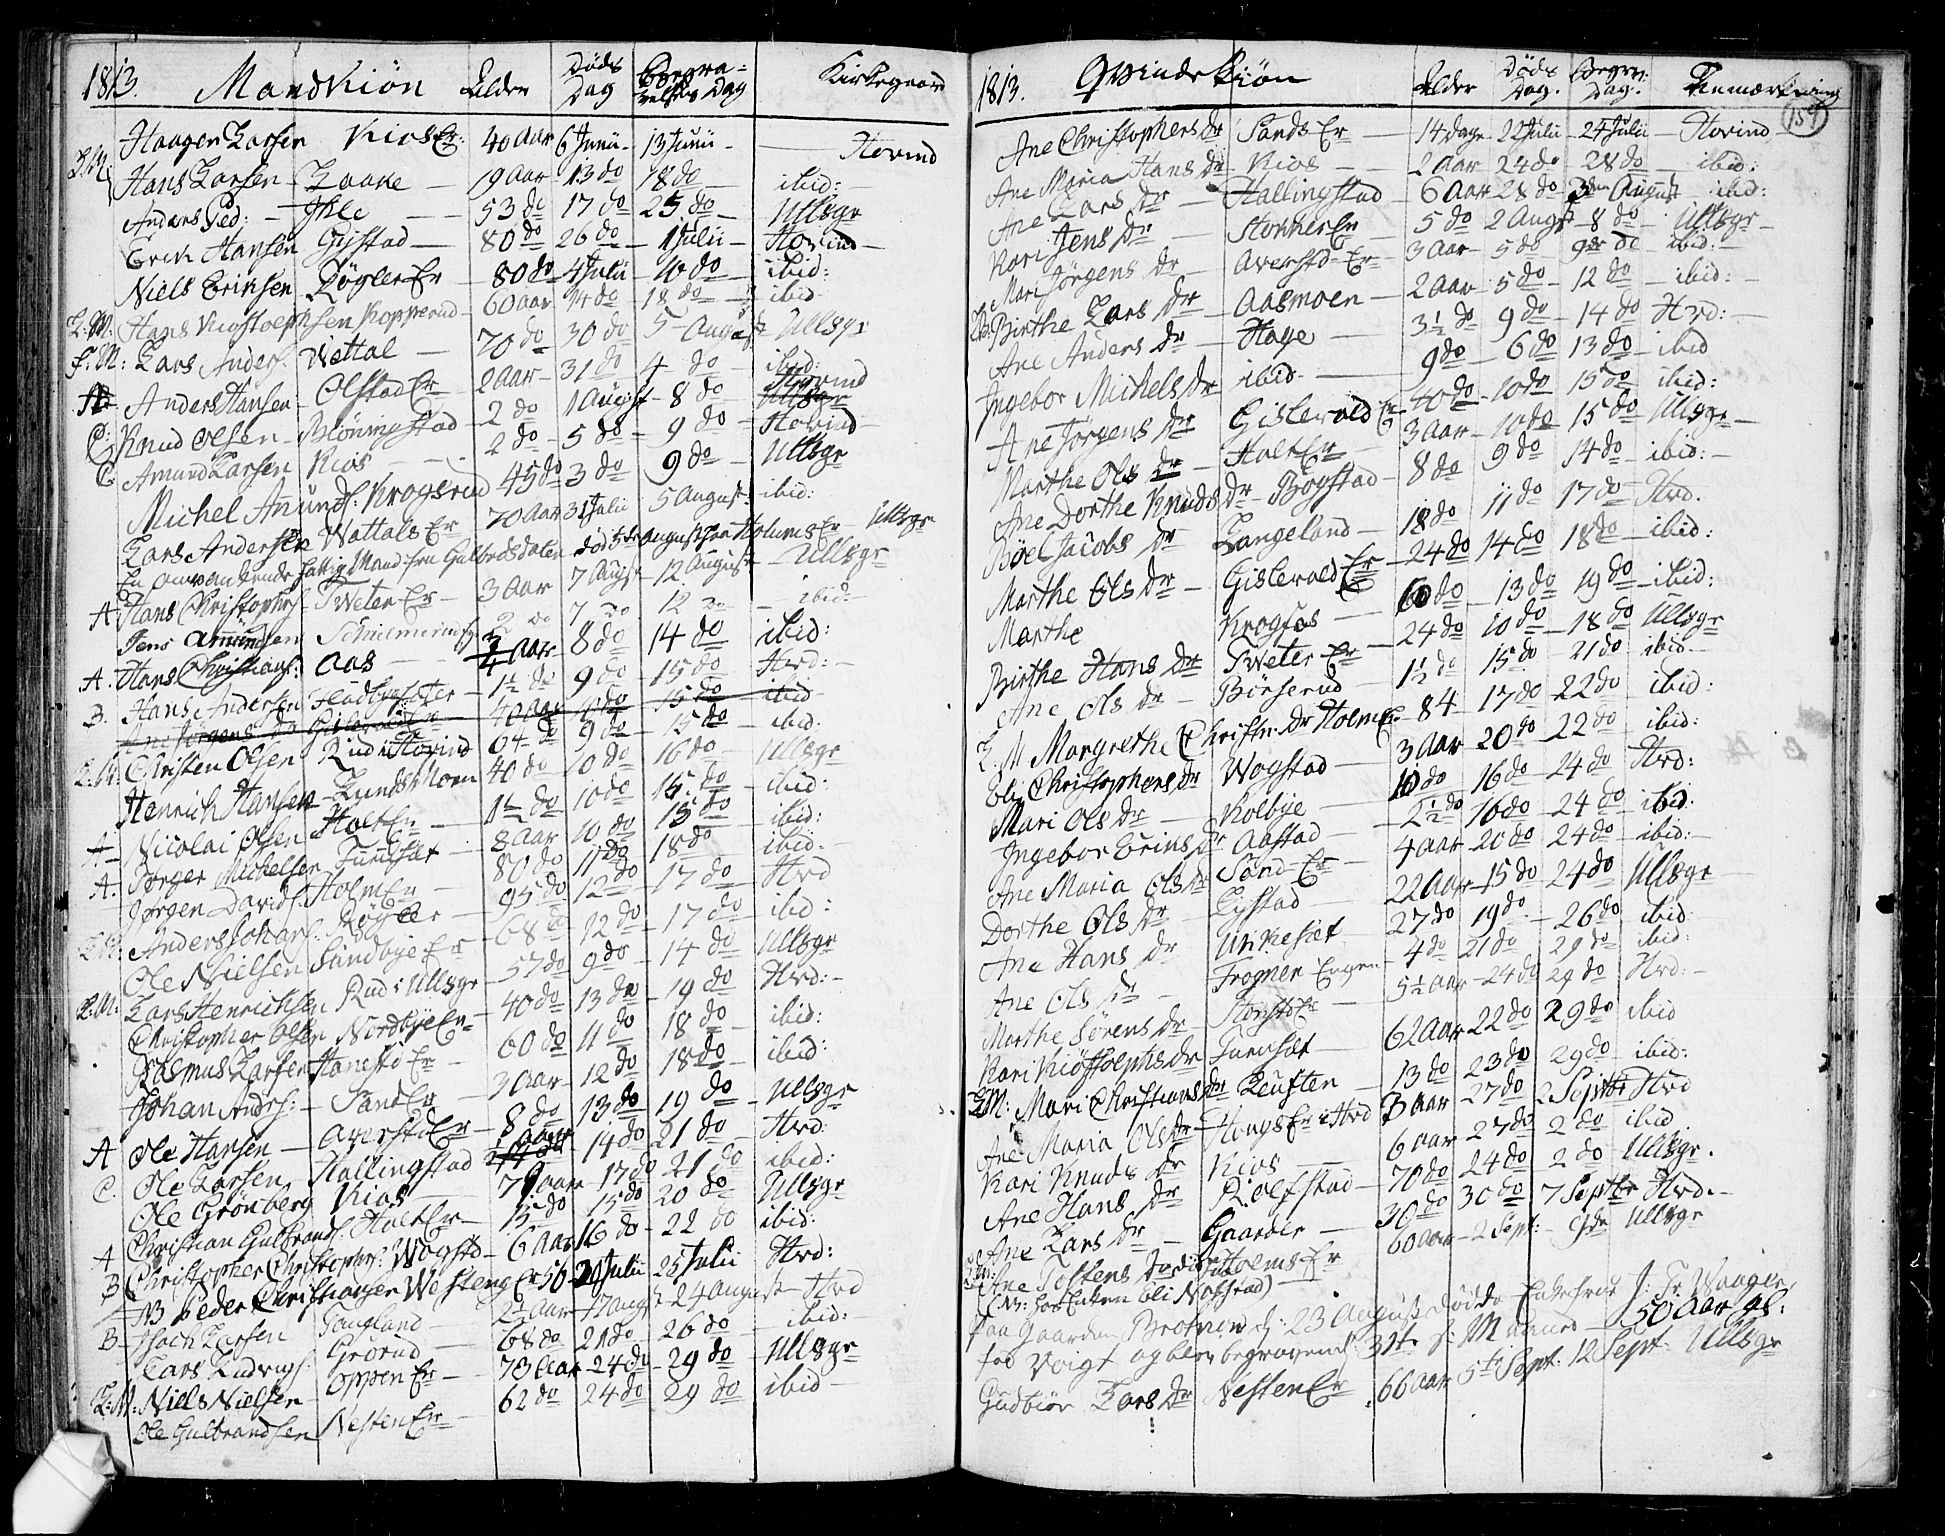 1813. Mandkiön Alder Döds Dag Begravelses Dag Kirkegaard
Haagen Larsen Kios Er: 40 Aar 6 Junii 13 Junii Hovind
Hans Larsen Laake 19 Aar 13 do 18 do ibid:
Anders Ped: Ihle 53 do 17 do 25 do Ullsgr
Erik Hansen Gystad 80 do 26 do 1 Julii Hovind
Niels Erichsen Rögler Er 80 do 4 Julii 10 do ibid:
L: M: Hans Kiostolphsen Kopperud 60 aar 14 do 18 do ibid
F: M: Lars Anders: Wettal 70 do 30 do 5 August Ullsgr
Anders Hansen Olstad Er 2 Aar 31 do 4 do ibid:
C: Knud Olsen Blöningstad 2 do 1 August 8 do Hovind
C Amund Larsen Kios 2 do 5 do 9 do Hovind
Michel Amunds: Krogsrud 45 do 3 do 9 do Ullsgr
Lars Andersen Wattals Er 70 Aar 31 Julii 5 August ibid:
En omvankende fattig Mand fra Gulbrdsdalen död 5te August paa Holums Er Ullsgr
A Hans Christophrs: Tweter Er 3 Aar 7 Augst 12 August Ullsgr
Jens Amundsen 2 do 7 do 12 do ibid:
A. Hans Christians: Aas Aar 8 do 14 do ibid:
B. Hans Andersen 1½ do 9 do 15 do Hrd:
Ane Jörgens Dr Gislevold Er 40 Aar 10 do 15 do ibid
L: M: Christen Olsen Rud i Hovind 64 do 9 do 15 do ibid:
Henrich Hansen Lunds Moen 40 do 10 do 16 do Ullsgr
A Nicolai Olsen Holt Er 1½ do 10 do 15 do ibid:
A. Torger Michelsen Furuset 8 Aar 10 do 15 do ibid:
Jörgen Davids: Holm Er 80 do 11 do 18 do ibid:
L: M: Anders Johans: Rögler 95 do 12 do 17 do Hrd
Ole Nielsen Sundbye Er 68 do 12 do 17 do ibid:
L: M: Lars Henrichsen Rud i Ullsgr 57 do 9 do 14 do Ullsgr
Christopher Olsen Nordbye Er 40 do 13 do 19 do Hrd:
Rasmus Larsen Hanestd Er 60 do 11 do 18 do ibid:
Johan Andrs: Sand Er 3 Aar 12 do 18 do ibid:
A Ole Hansen Averstd Er 8 do 13 do 19 do Ullsgr
C. Ole Larsen Hallingstad Aar 14 do 21 do Hrd:
Ole Grönberg Kios 79 Aar 17 do 21 do ibid:
A Christian Gulbrands: Holt Er 15 do 15 do 20 do Ullsgr
B Christopher Christophrs: Wogstd 6 Aar 16 do 22 do ibid:
NB Peder Christianssen Westeng Er 56 20 Julii 25 Julii Hrd:
B Isach Larsen Langland 2½ Aar 17 Augst 24 August Hrd
Lars Ludvigs: Grörud 68 do 21 do 26 do ibid:
L: M: Niels Nielsen Oppen Er 73 Aar 24 do 29 do Ullsgr
Ole Gulbrandsen Nesten Er 62 do 24 do 29 do ibid
1813. Qvindekiön Alder Döds Dag. Begrv: Dag. Anmærkning
159
Ane Christophers Dr Sands Er 14 dage 22 Julii 24 Julii Hovind
Ane Maria Hans Dr Kios 2 Aar 24 do 28 do ibid:
Ane Lars Dr Hallingstad 6 Aar 28 do 3 den August ibid:
Kari Jens Dr Stokker Er 5 do 2 Augst 8 do Ullsgr
Mari Jörgens Dr Averstd Er 3 Aar 5 do 9 do ibid:
Birthe Lars Dr Aasmoen 2 Aar 5 do 12 do ibid:
Ane Anders Dr Hage 3½ do 9 do 14 do Hrd:
Ingebor Michels Dr ibid. 9 do 6 do 13 do ibid
Ane Jörgens Dr Gislevold Er 40 do 10 do 15 do ibid:
Marthe Ols Dr Holt Er 3 Aar 10 do 15 do Ullsgr
Ane Dorthe Knuds Dr Bogstad 8 do 9 do 14 do ibid:
Böel Jacobs Dr Langeland 18 do 11 do 17 do Hrd.
Marthe Ols Dr Gislevold Er 24 do 14 do 18 do ibid:
Marthe Krogfos 60 do 13 do 19 do ibid:
Birthe Hans Dr Tweter Er 24 do 10 do 18 do Ullsgr
Ane Ols Dr Börserud 1½ do 15 do 21 do ibid.
L. M Margrethe Christn: Dr Holm Er 84 17 do 22 do ibid:
Eli Christophers Dr Wogstad 3 Aar 20 do 22 do ibid:
Mari Ols Dr Kolbye 10 do 16 do 24 do Hrd:
Ingebor Erics Dr Aastad 2½ do 16 do 24 do ibid:
Ane Maria Ols Dr Sand Er 4 Aar 20 do 24 do ibid:
Dorthe Ols Dr Gystad 22 Aar 15 do 24 do Ullsgr
Ane Hans Dr Urkeset 27 do 19 do 26 do ibid.
Ane Ols Dr Frogner Engen 4 do 21 do 29 do ibid:
Marthe Sörens Dr 5½ Aar 24 do 29 do Hrd:
Kari Kiöstolphs Dr Furuset 62 Aar 22 do 29 do ibid
L M: Mari Christians Dr Leuften 13 do 23 do 29 do ibid:
Ane Maria Ols Dr Hougs Er i Hrd 3 Aar 27 do 2 Septbr Hrd
Kari Knuds Dr Kios 6 Aar 27 do 2 do ibid
Ane Hans Dr Rolfstad 70 do 24 do 2 do Ullsgr.
Ane Lars Dr Gaarder 30 do 30 do 7 Septbr Hrd.
Ane Tostens Dr Holms Er 60 Aar 2 Sept: 9 do Ullsgr
(NB: hos Enken Eli Nafstad)
Paa Gaarden Brotnow d: 23 August döde Enkefrue J: Fr Waager,
fød Voigt og blev begraven d: 31te s: Maaned 50 Aar gl:
Gudbiör Lars Dr Nesten Er 66 Aar 5te Sept: 12 Sept: Ullsgr